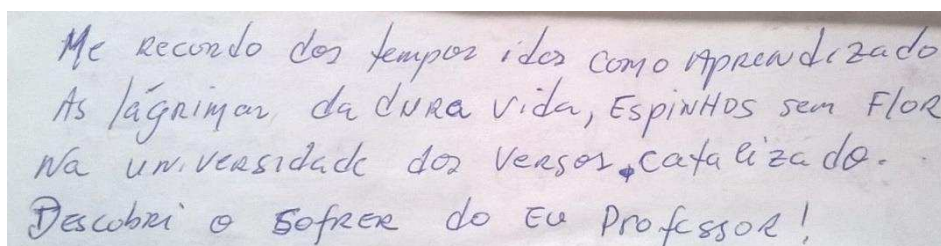 Me Recordo dos tempos idos como Aprendizado
As lágrimas da dura vida, Espinhos sem Flor
Na universidade dos versos, catalizado.
Descobri o sofrer do Eu Professor!